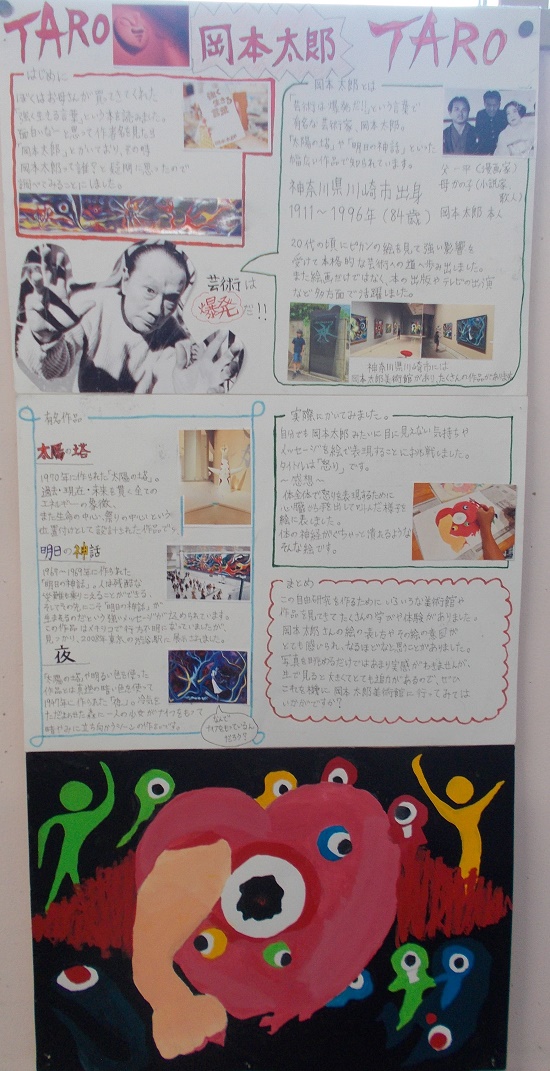 TARO 岡本太郎 TARO
はじめに
ぼくはお母さんが買ってきてくれた
「強く生きる言葉」という本を読みました。
面白いな〜と思って作者名を見たら
「岡本太郎」とかいており、その時
岡本太郎って誰?と疑問に思ったので
調べてみることにしました。
芸術は
爆発だ!!
岡本太郎とは
「芸術は爆発だ!」という言葉で
有名な芸術家、岡本太郎。
「太陽の塔」や「明日の神話」といった
幅広い作品で知られています。
神奈川県川崎市出身
1911〜1996年(84歳)
父 一平(漫画家)
母 かの子(小説家、
歌人)
岡本太郎 本人
20代の頃にピカソの絵を見て強い影響を
受けて本格的な芸術人の道へ歩み出しました。
また絵画だけではなく、本の出版やテレビの出演
など多方面で活躍しました。
神奈川県川崎市には
岡本太郎美術館があり、たくさんの作品があります
有名作品
太陽の塔
1970年に作られた「太陽の塔」。
過去・現在・未来を貫く全ての
エネルギーの象徴、
また生命の中心、祭りの中心という
位置付けとして設計された作品です。
明日の神話
1968〜1969年に作られた
「明日の神話」。人は残酷な
苦難も乗りこえることができる、
そしてその先にこそ「明日の神話」が
生まれるのだという強いメッセージが込められています。
この作品はメキシコで行方不明になっていましたが、
見つかり、2008年東京の渋谷駅に展示されました。
夜
「太陽の塔」や明るい色を使った
作品とは真逆の暗い色を使って
1947年に作られた「夜」。
一人の少女がナイフをもって
暗やみに立ち向かうシーンの作品です。
なんで
ナイフをもっているん
だろう?
実際にかいてみました。
自分でも岡本太郎みたいに目に見えない気持ちや
メッセージを絵で表現することに挑戦しました。
タイトルは「怒り」です。
〜感想〜
体全体で怒りを表現するために
心臓から飛出して
絵に表しました。
体の神経がぐちゃぐちゃに消えるような
そんな絵です。
まとめ
この自由研究を作るためにいろいろな美術館や
作品を見てきてたくさんの学びや体験がありました。
岡本太郎さんの絵の表し方やその絵の意図が
とても感じられ、なるほどなと思うことがありました。
写真を見ているだけではあまり実感がわきませんが、
生で見ると大きくてとても迫力があるので、ぜひ
これを機に岡本太郎美術館に行ってみては
いかがですか?